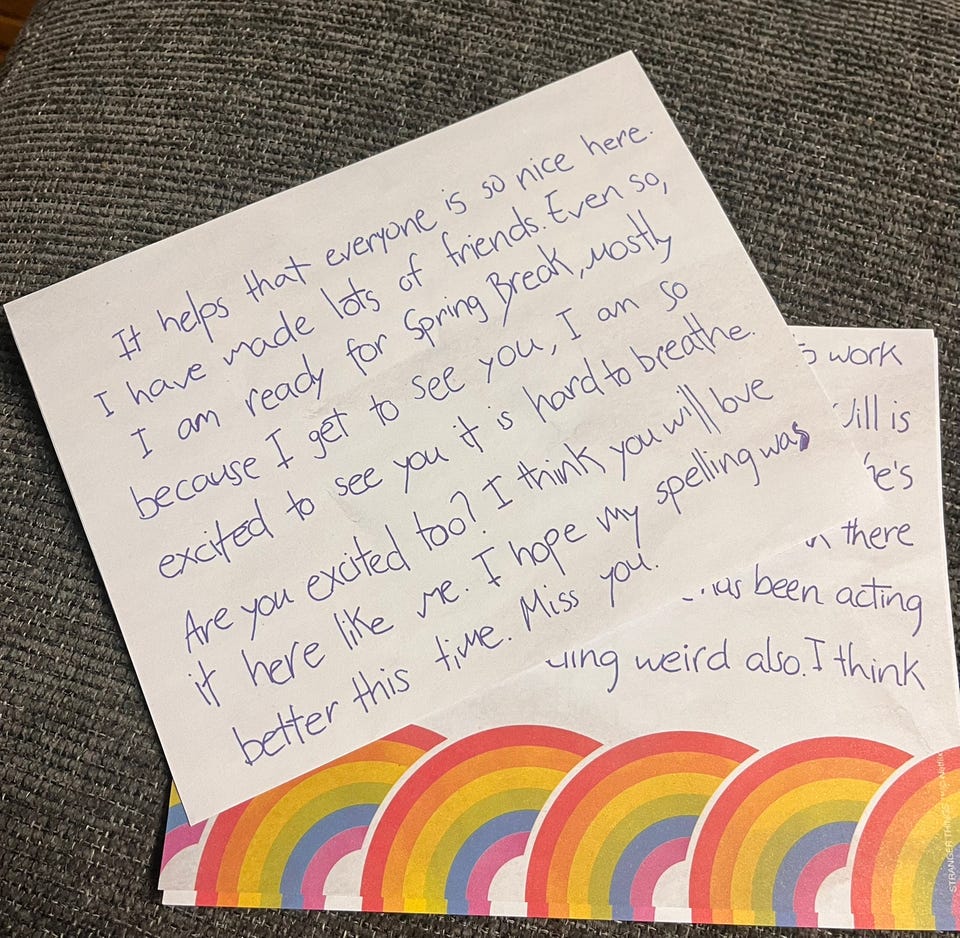 It helps that everyone is so nice here.
I have made lots of friends. Even so,
I am ready for Spring Break, mostly
because I get to see you, I am so
excited to see you it is hard to breathe.
Are you excited too? I think you will love
it here like me. I hope my spelling was
better this time. Miss you.
work
is
there
been acting
weird also. I think
STRANGER THINGS